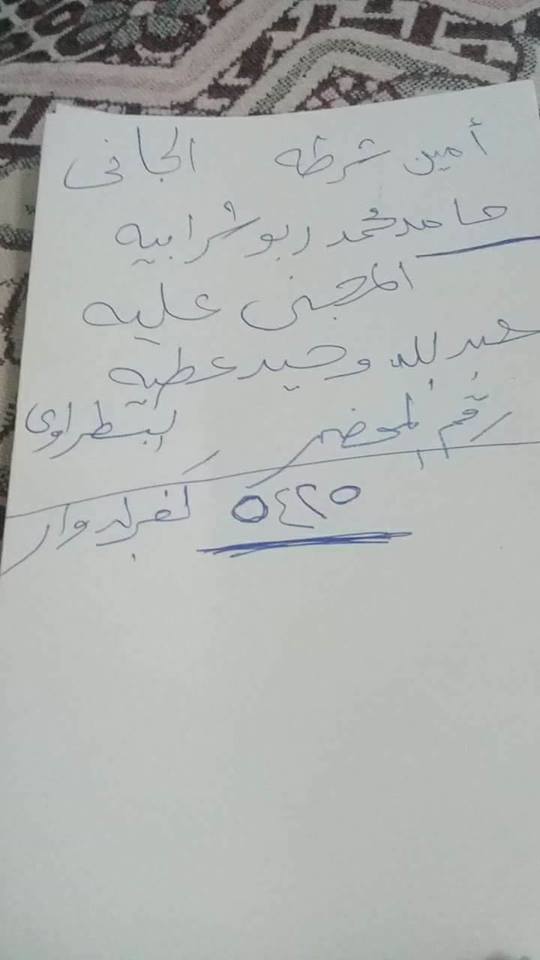 أمين شرطه الجانى
حامد محمد ربو شرابيه
المجنى عليه
عبد لله وحيد عطيه
البسطراوى
رقم المحضر
٥٤٢٥ كفر لدوار